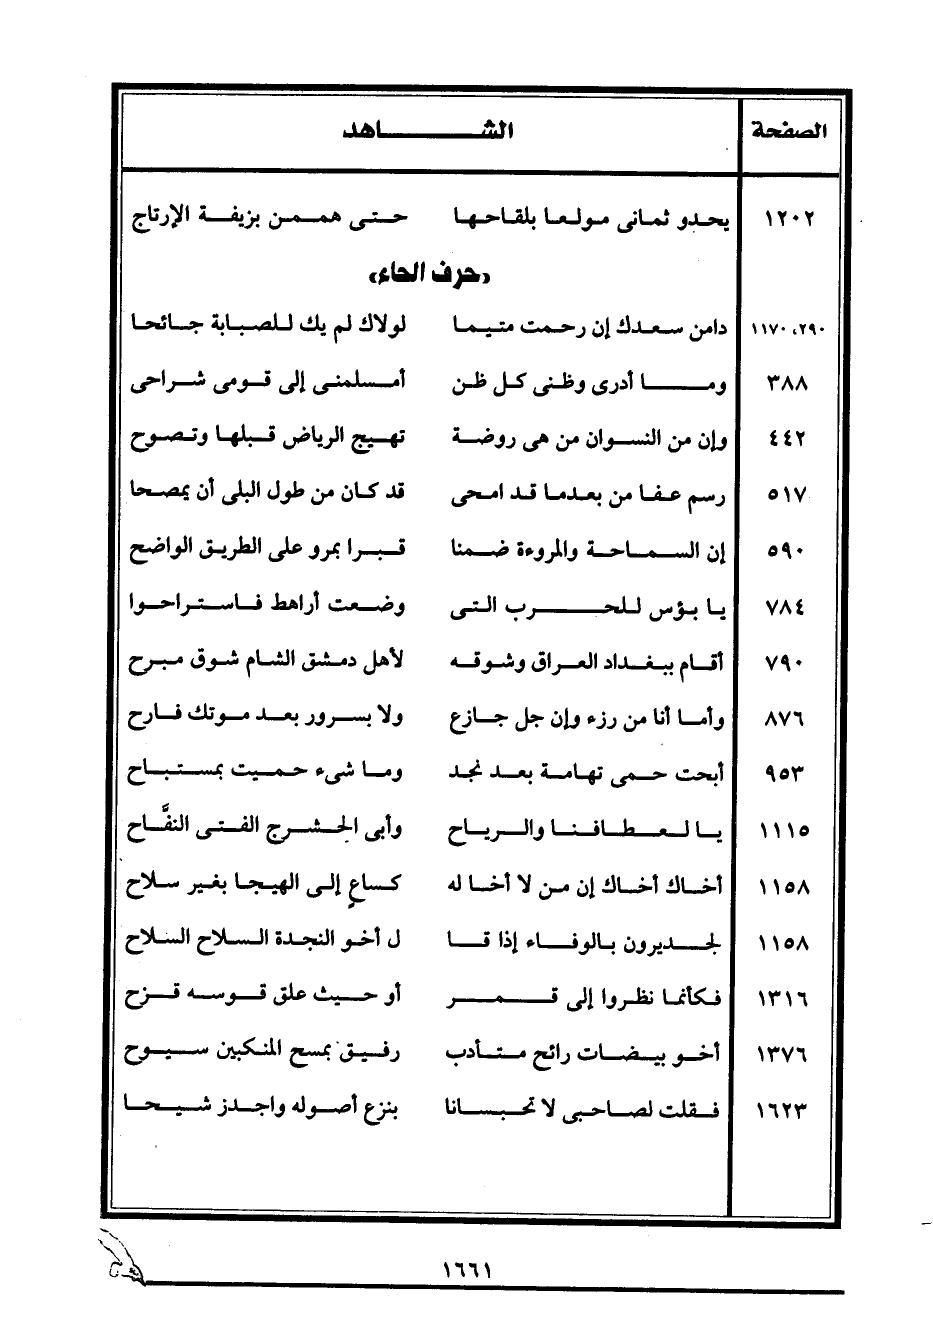 الصفحة الشاهد
١٢٠٢ يحدو ثمانى مولعا بلقاحها حتى هممن بزيفة الإرتاج
«حرف الحاء»
٢٩٠، ١١٧٠ دامن سعدك إن رحمت متيما لولاك لم يك للصبابة جانحا
٣٨٨ وما أدرى وظنى كل ظن أمسلمنى إلى قومى شراحى
٤٤٢ وإن من النسوان من هى روضة تهيج الرياض قبلها وتصوح
٥١٧ رسم عفا من بعدما قد امحى قد كان من طول البلى أن يمصحا
٥٩٠ إن السماحة والمروءة ضمنا قبرا بمرو على الطريق الواضح
٧٨٤ يا بؤس للحرب التى وضعت أراهط فاستراحوا
٧٩٠ أقام ببغداد العراق وشوقه لأهل دمشق الشام شوق مبرح
٨٧٦ وأما أنا من رزء وإن جل جازع ولا بسرور بعد موتك فارح
٩٥٣ أبحت حمى تهامة بعد نجد وما شىء حميت بمستباح
١١١٥ يا لعطافنا والرياح وأبى الحشرج الفتى النفَّاح
١١٥٨ أخاك أخاك إن من لا أخا له كساعٍ إلى الهيجا بغير سلاح
١١٥٨ لجديرون بالوفاء إذا قا ل أخو النجدة السلاح السلاح
١٣١٦ فكأنما نظروا إلى قمر أو حيث علق قوسه قزح
١٣٧٦ أخو بيضات رائح متأدب رفيق بمسح المنكبين سيوح
١٦٢٣ فقلت لصاحبى لا تحبسانا بنزع أصوله واجدز شيحا
١٦٦١